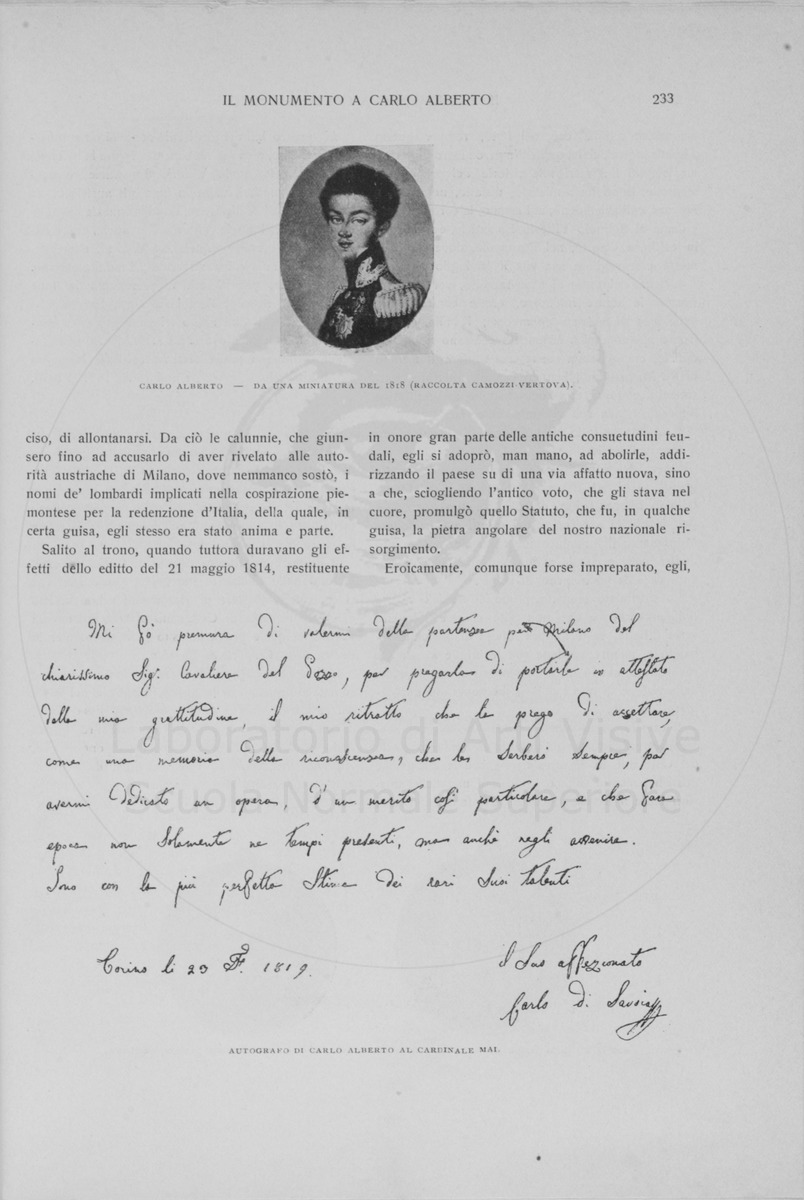 IL MONUMENTO A CARLO ALBERTO
233
CARLO ALBERTO — DA UNA MINIATURA DEL 1818 (RACCOLTA CAMOZZI-VERTOVA).
ciso, di allontanarsi. Da ciò le calunnie, che giun-
sero fino ad accusarlo di aver rivelato alle auto-
rità austriache di Milano, dove nemmanco sostò, i
nomi de' lombardi implicati nella cospirazione pie-
montese per la redenzione d'Italia, della quale, in
certa guisa, egli stesso era stato anima e parte.
Salito al trono, quando tuttora duravano gli ef-
fetti dello editto del 21 maggio 1814, restituente
in onore gran parte delle antiche consuetudini feu-
dali, egli si adoprò, man mano, ad abolirle, addi-
rizzando il paese su di una via affatto nuova, sino
a che, sciogliendo l'antico voto, che gli stava nel
cuore, promulgò quello Statuto, che fu, in qualche
guisa, la pietra angolare del nostro nazionale ri-
sorgimento.
Eroicamente, comunque forse impreparato, egli,
Mi fò premura di valermi della partenza Milano del
chiarissimo Sig.r Cavaliere del Pozzo, per pregarla di in attestato
della mia grattitudine, il mio ritratto che la prego di accettare,
come una memoria della riconoscenza, che le serberò sempre, per
avermi dedicato un opera, d'un merito così particolare, e che farà
epoca non solamente ne tempi presenti, ma anche negli avvenire.
Sono con la più perfetta stima dei rari suoi talenti
Torino li 23 F. 1819.
il suo affezionato
Carlo di Savoia
AUTOGRAFO DI CARLO ALBERTO AL CARDINALE MAI.
Laboratorio di Arti Visive
Scuola Normale Superiore